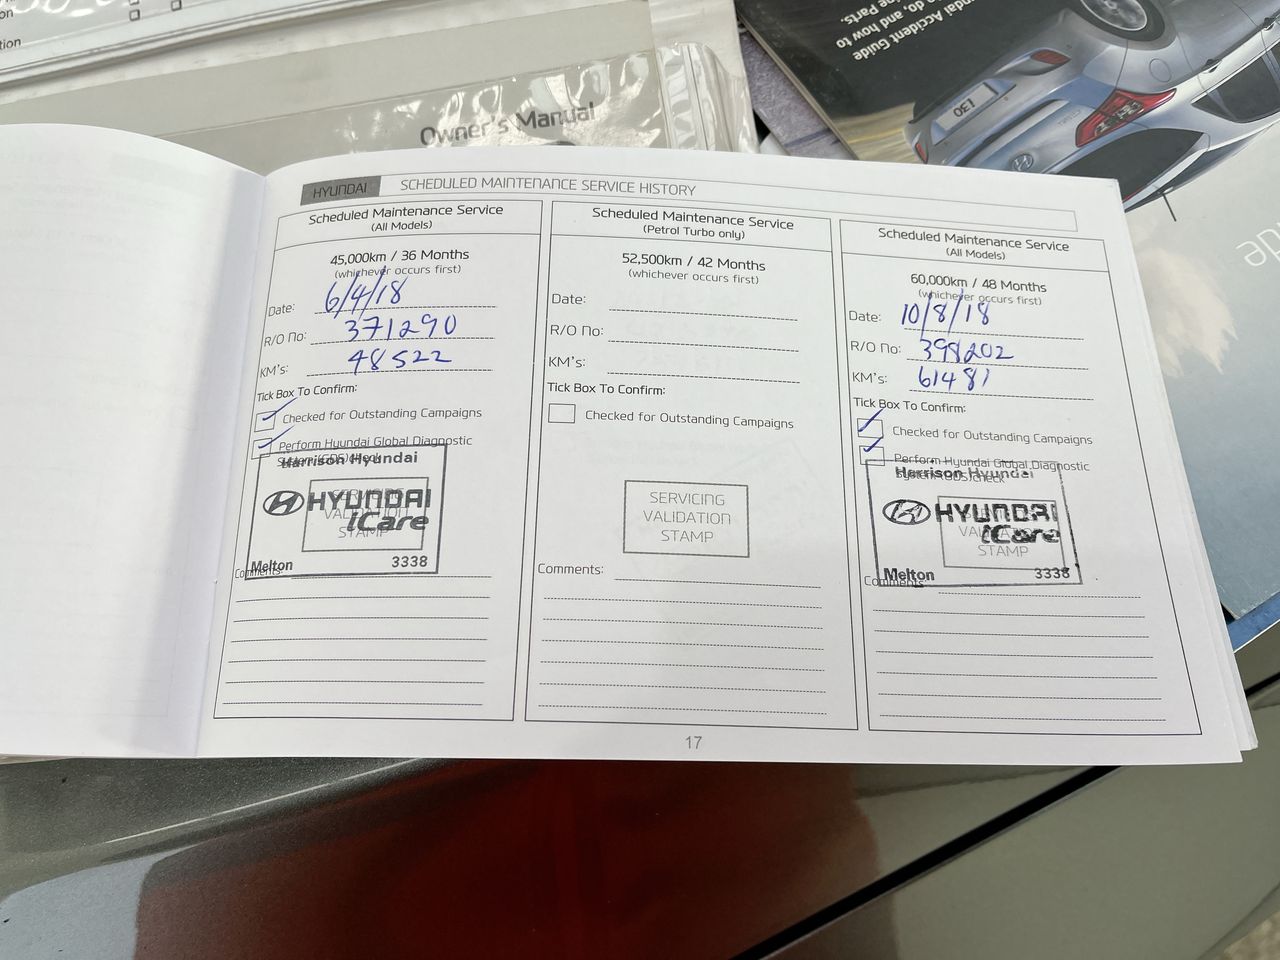 on
tion
Owner's Manual
Hyundai Accident Guide
do, and how to
Parts.
i30
HYUNDAI
SCHEDULED MAINTENANCE SERVICE HISTORY
Scheduled Maintenance Service
(All Models)
45,000km / 36 Months
(whichever occurs first)
Date: 6/4/18
R/O No: 371290
KM's: 48522
Tick Box To Confirm:
Checked for Outstanding Campaigns
Perform Hyundai Global Diagnostic
System (GDS) check
Harrison Hyundai
HYUNDAI
iCare
Melton 3338
SERVICING
VALIDATION
STAMP
Comments:
Scheduled Maintenance Service
(Petrol Turbo only)
52,500km / 42 Months
(whichever occurs first)
Date:
R/O No:
KM's:
Tick Box To Confirm:
Checked for Outstanding Campaigns
SERVICING
VALIDATION
STAMP
Comments:
Scheduled Maintenance Service
(All Models)
60,000km / 48 Months
(whichever occurs first)
Date: 10/8/18
R/O No: 398202
KM's: 61481
Tick Box To Confirm:
Checked for Outstanding Campaigns
Perform Hyundai Global Diagnostic
System (GDS) check
Harrison Hyundai
HYUNDAI
iCare
Melton 3338
SERVICING
VALIDATION
STAMP
Comments:
17